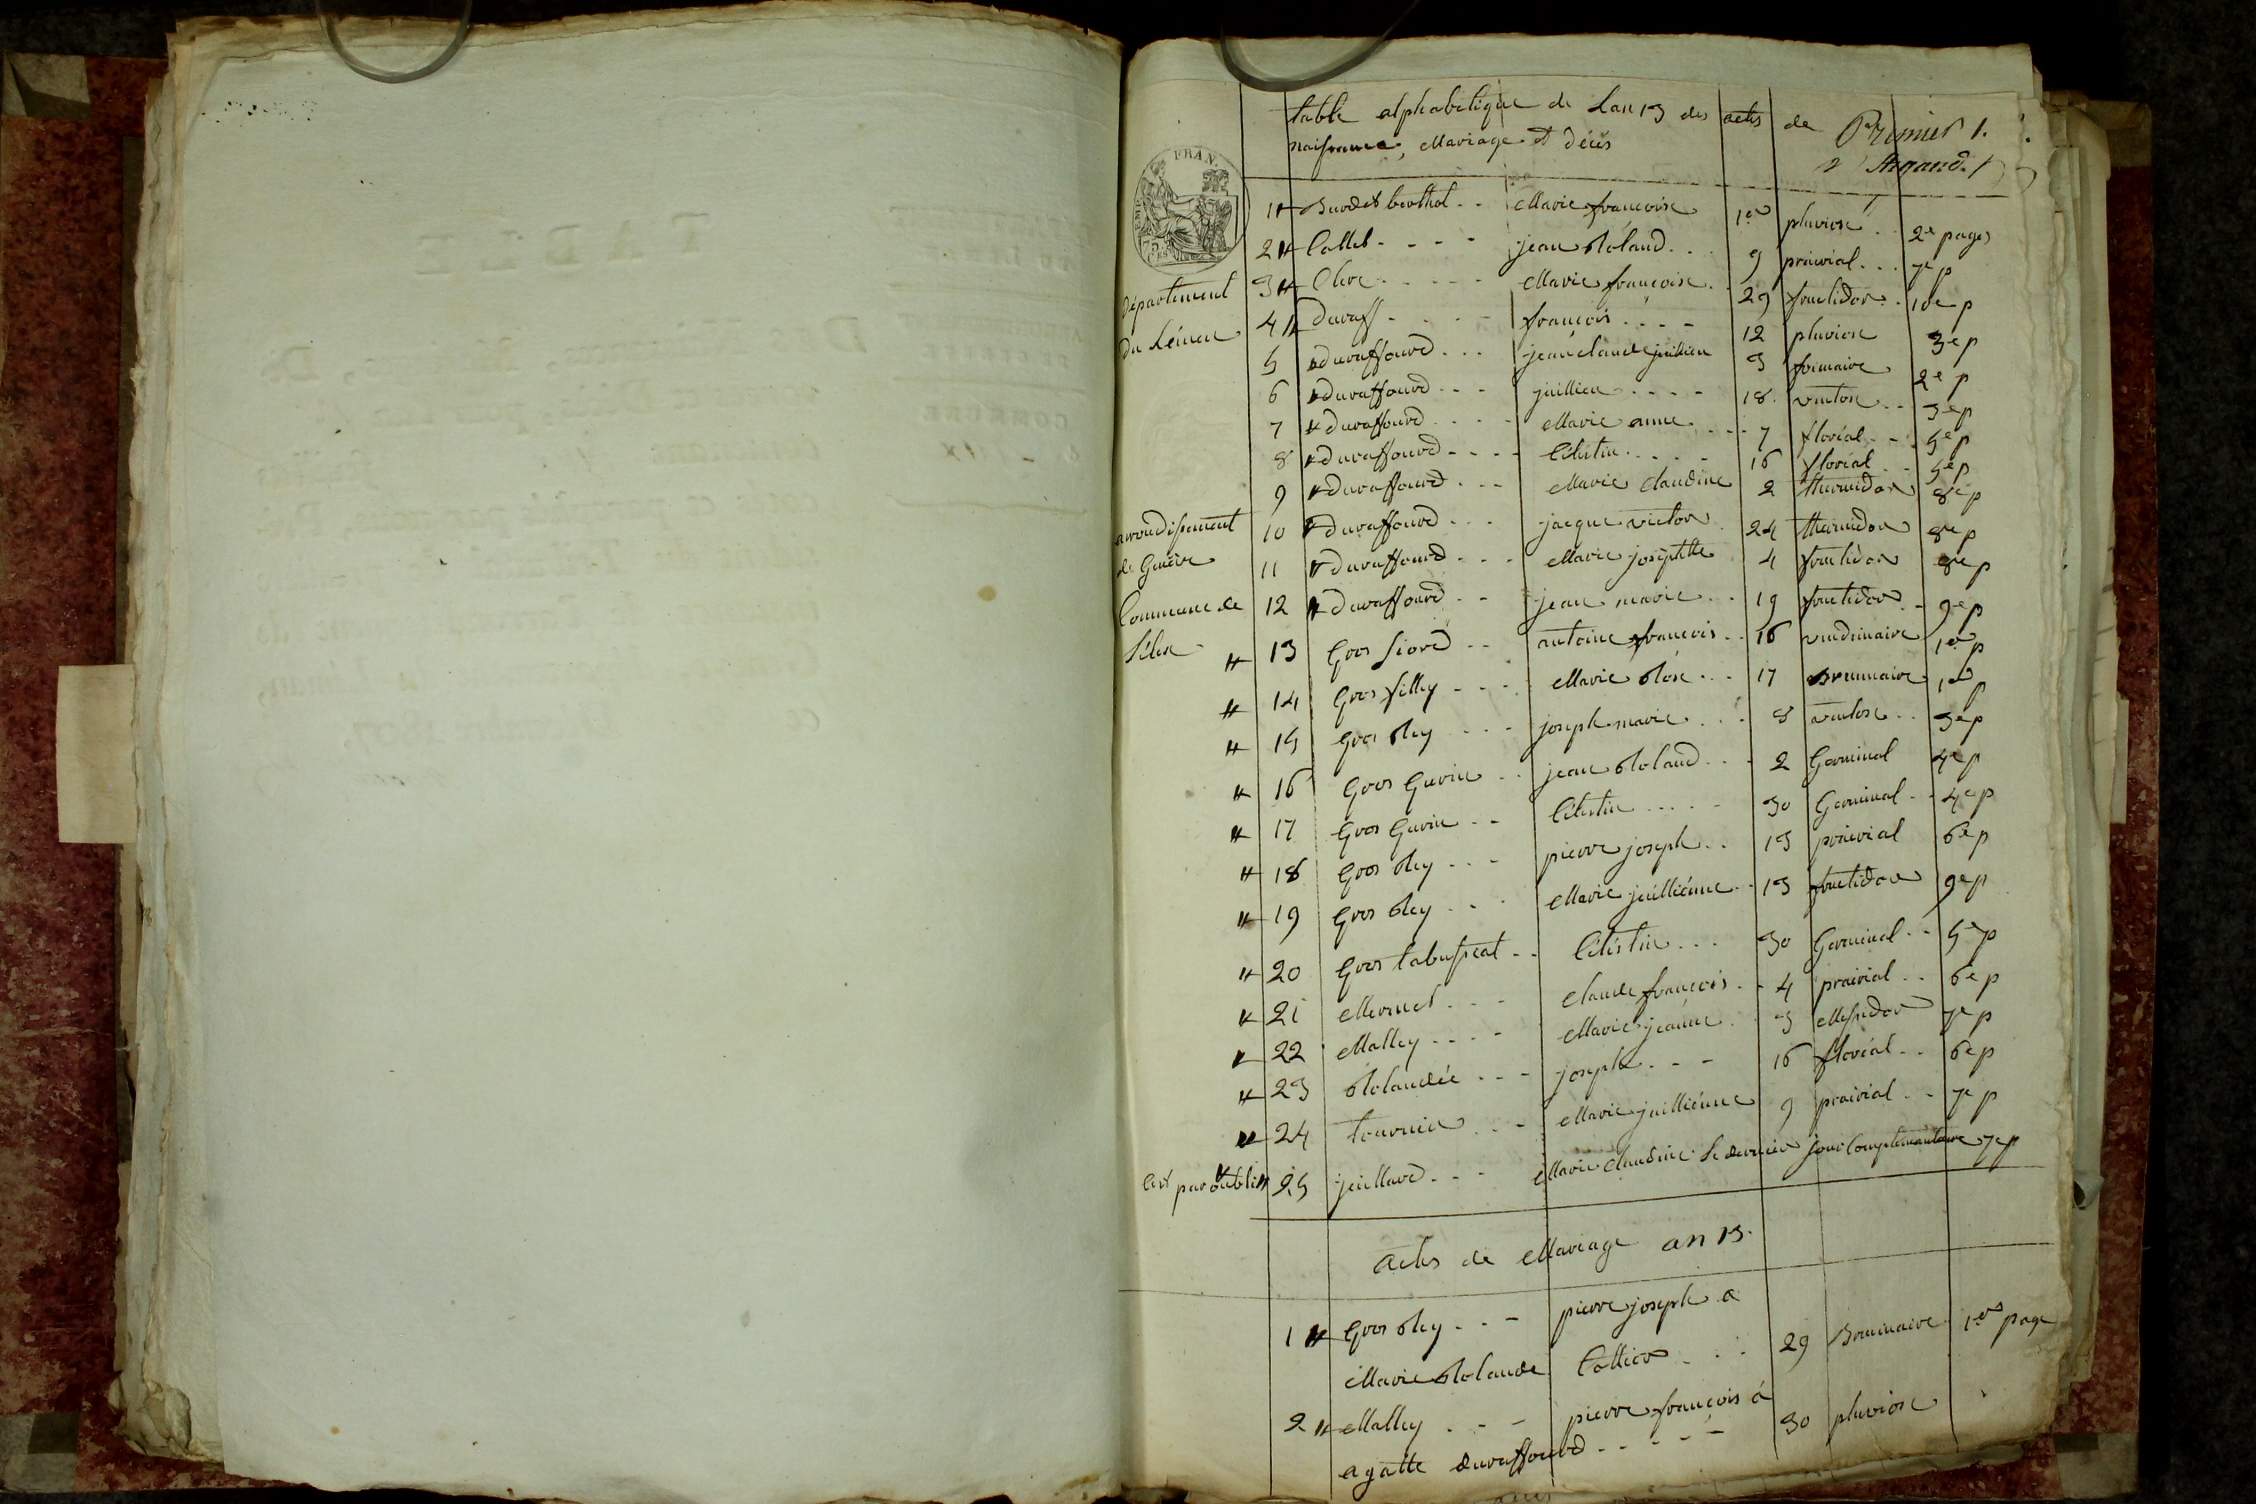 table alphabetique de Lan 13 des actes de Premier 1.
naissance, Mariage et Décès
FRAN.
Departement
du Léman
arrondissement
de Genève
Commune de
1 Burdet berthol - - Marie francoise 1er pluviose - - 2e pages
2 Collet - - - - jean Roland - - 9 prairial - - - 7e p
3 Clerc - - - - - Marie françoise - - 29 fructidor - - 10e p
4 Duraff - - - - françois - - - - 12 pluviose 3e p
5 duraffourd - - - jean claude juillien 3 frimaire 2e p
6 Duraffourd - - - juillien - - - - 18 ventose - - 3e p
7 duraffourd - - - - Marie anne - - - 7 floréal - - - 5e p
8 Duraffourd - - - - Célestin - - - - 16 floréal - - 5e p
9 Duraffourd - - - Marie Claudine 2 thermidor 8e p
10 Duraffourd - - - jacque victor 24 thermidor 8e p
11 Duraffourd - - - Marie josephtte 4 fructidor 8e p
12 Duraffourd - - jean marie - - 19 fructidor - 9e p
13 Gros fiord - - antoine francois - - 16 vendemiaire 1er p
14 Gros filley - - - - Marie Rose - - - 17 Brumaire 1er p
15 Gros Rey - - - joseph marie - - - 8 ventose - - 3e p
16 Gros Gurin - - jean Roland - - - 2 Germinal 4e p
17 Gros Gurin - - Célestin - - - - 30 Germinal - - 4e p
18 Gros Rey - - - pierre joseph - - 13 prairial 6e p
19 Gros Rey - - - Marie juilliénne - - 13 fructidor 9e p
20 Gros tabussiat - - Célestin - - - 30 Germinal - - 5e p
21 Mermet - - - claude françois - - 4 prairial - - 6e p
22 Malley - - - - Marie jeanne - - 3 Messidor 7e p
23 Rolandée - - - joseph - - - 16 floréal - - 6e p
24 tournier - - - Marie juilliénne 9 prairial - - 7e p
Cest par oubli 25 juillard - - - Marie Claudine Le dernier jour Complémantaire 7e p
actes de Mariage an 13.
1 Gros Rey - - - pierre joseph a
Marie Rolande Collier - - - 29 Brumaire 1er page
2 Malley - - - pierre françois á
agatte duraffourd - - - - - 30 pluviose